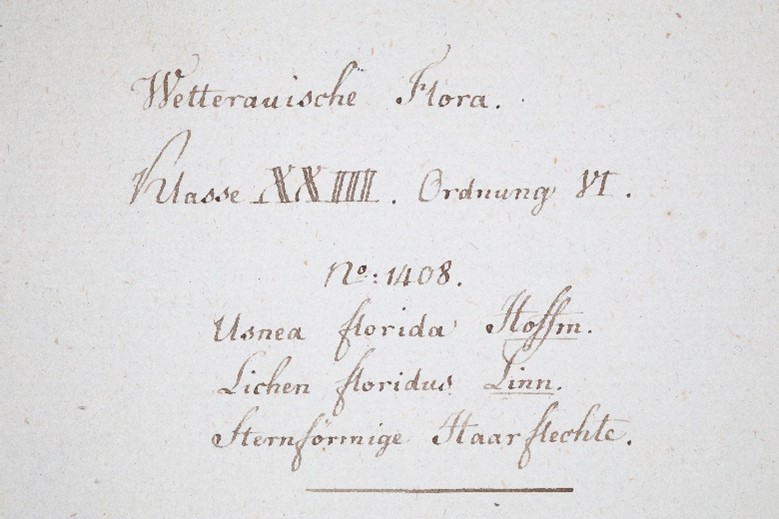 Wetterauische Flora.
Klasse XXIIII. Ordnung VI.
No: 1408.
Usnea florida Hoffm.
Lichen floridus Linn.
Sternförmige Haarflechte.